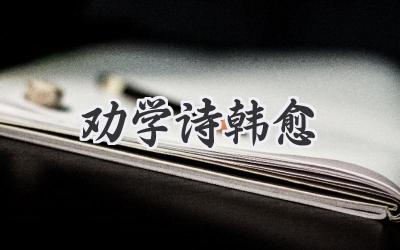 劝学诗韩愈